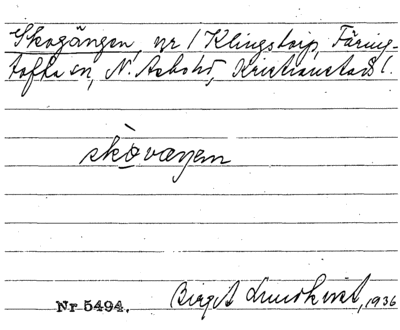 Skogängen, nr 1 Klingstorp, Färing-
tofta sn, N. Åsbo hd, Kristianstads l.
skovæŋen
Nr 5494.
Birgit Lundkvist, 1936